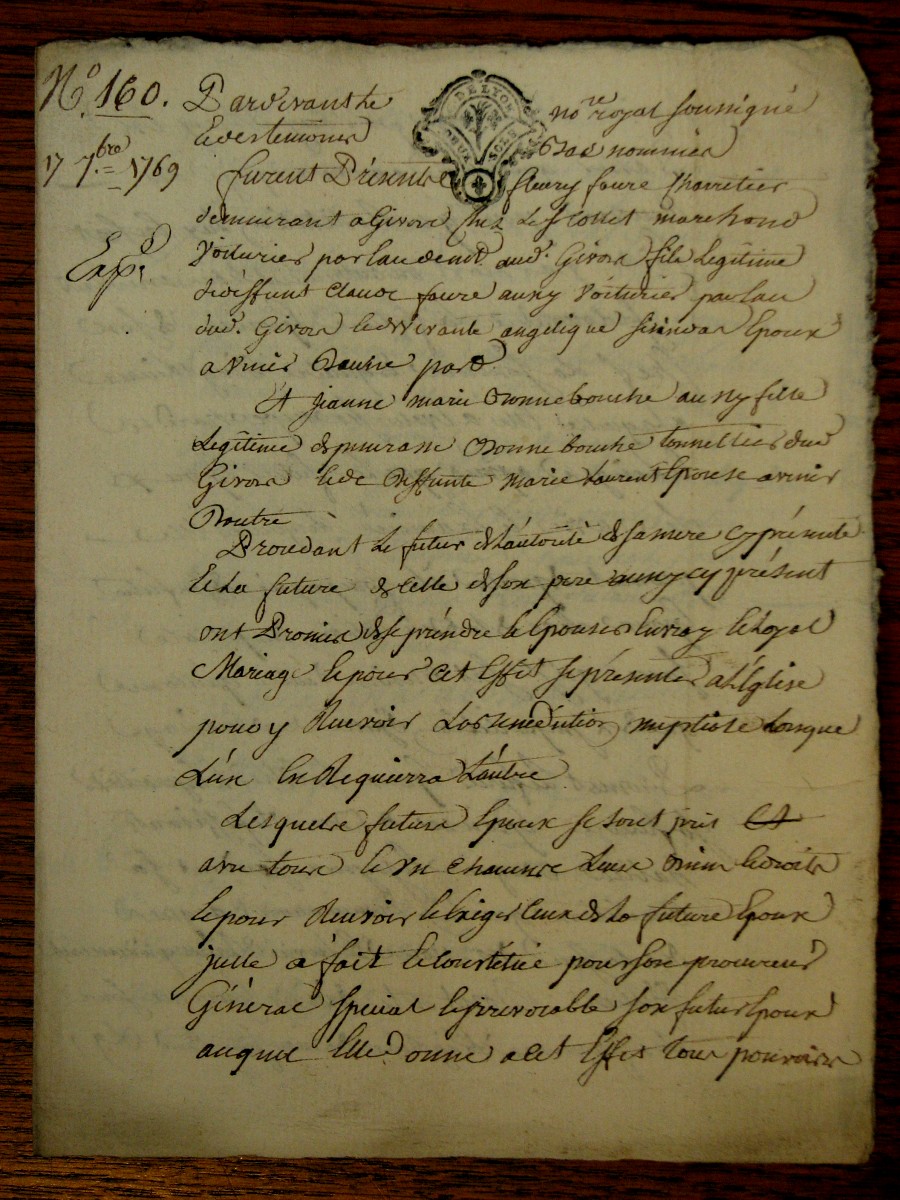 N.° 160.
17 7.bre 1769
Exp.d
DE LYON
DEUX SOLS
Pardevant le no.re royal soussigné
et les temoins bas nommés
furent Présents fleury faure charretier
demeurant a Givors chez le s.r marchand
voiturier par eau dem.t aud.t Givors fils Legitime
de deffunt Claude faure aussy voiturier par eau
dud.t Givors et de vivante angelique Epoux
a venir d'autre part
Et jeanne marie Bonnebouche aussy fille
Legitime de Bonnebouche tonnellier dud.t
Givors et de deffunte marie Laurent Epouse avenir
D'autre
Procédant le futur de L'autorité de sa mere cy présente
Et La future de celle de son pere aussy cy présent
ont Promis de se prendre et Epouser en vray et Loyal
Mariage et pour cet Effet se présenter a L'Eglise
pour y Recevoir La Benediction nuptiale Lorsque
L'un En Requierra L'autre
Lesquels futurs Epoux se sont pris Et
avec tous et un chacuns Leurs Biens et droits
et pour Recevoir et Exiger ceux de La future Epouse
jcelle a fait et constitué pour son procureur
Général special et jrrevocable son futur Epoux
auquel Elle Donne a cet Effet tous pouvoirs